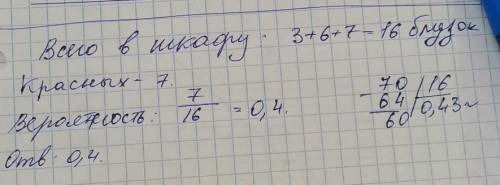 Всего в шкафу: 3+6+7=16 блузок
Красных - 7.
Вероятность: 7/16 = 0,4.
Отв: 0,4.
-70 | 16
64 | 0,43~
60